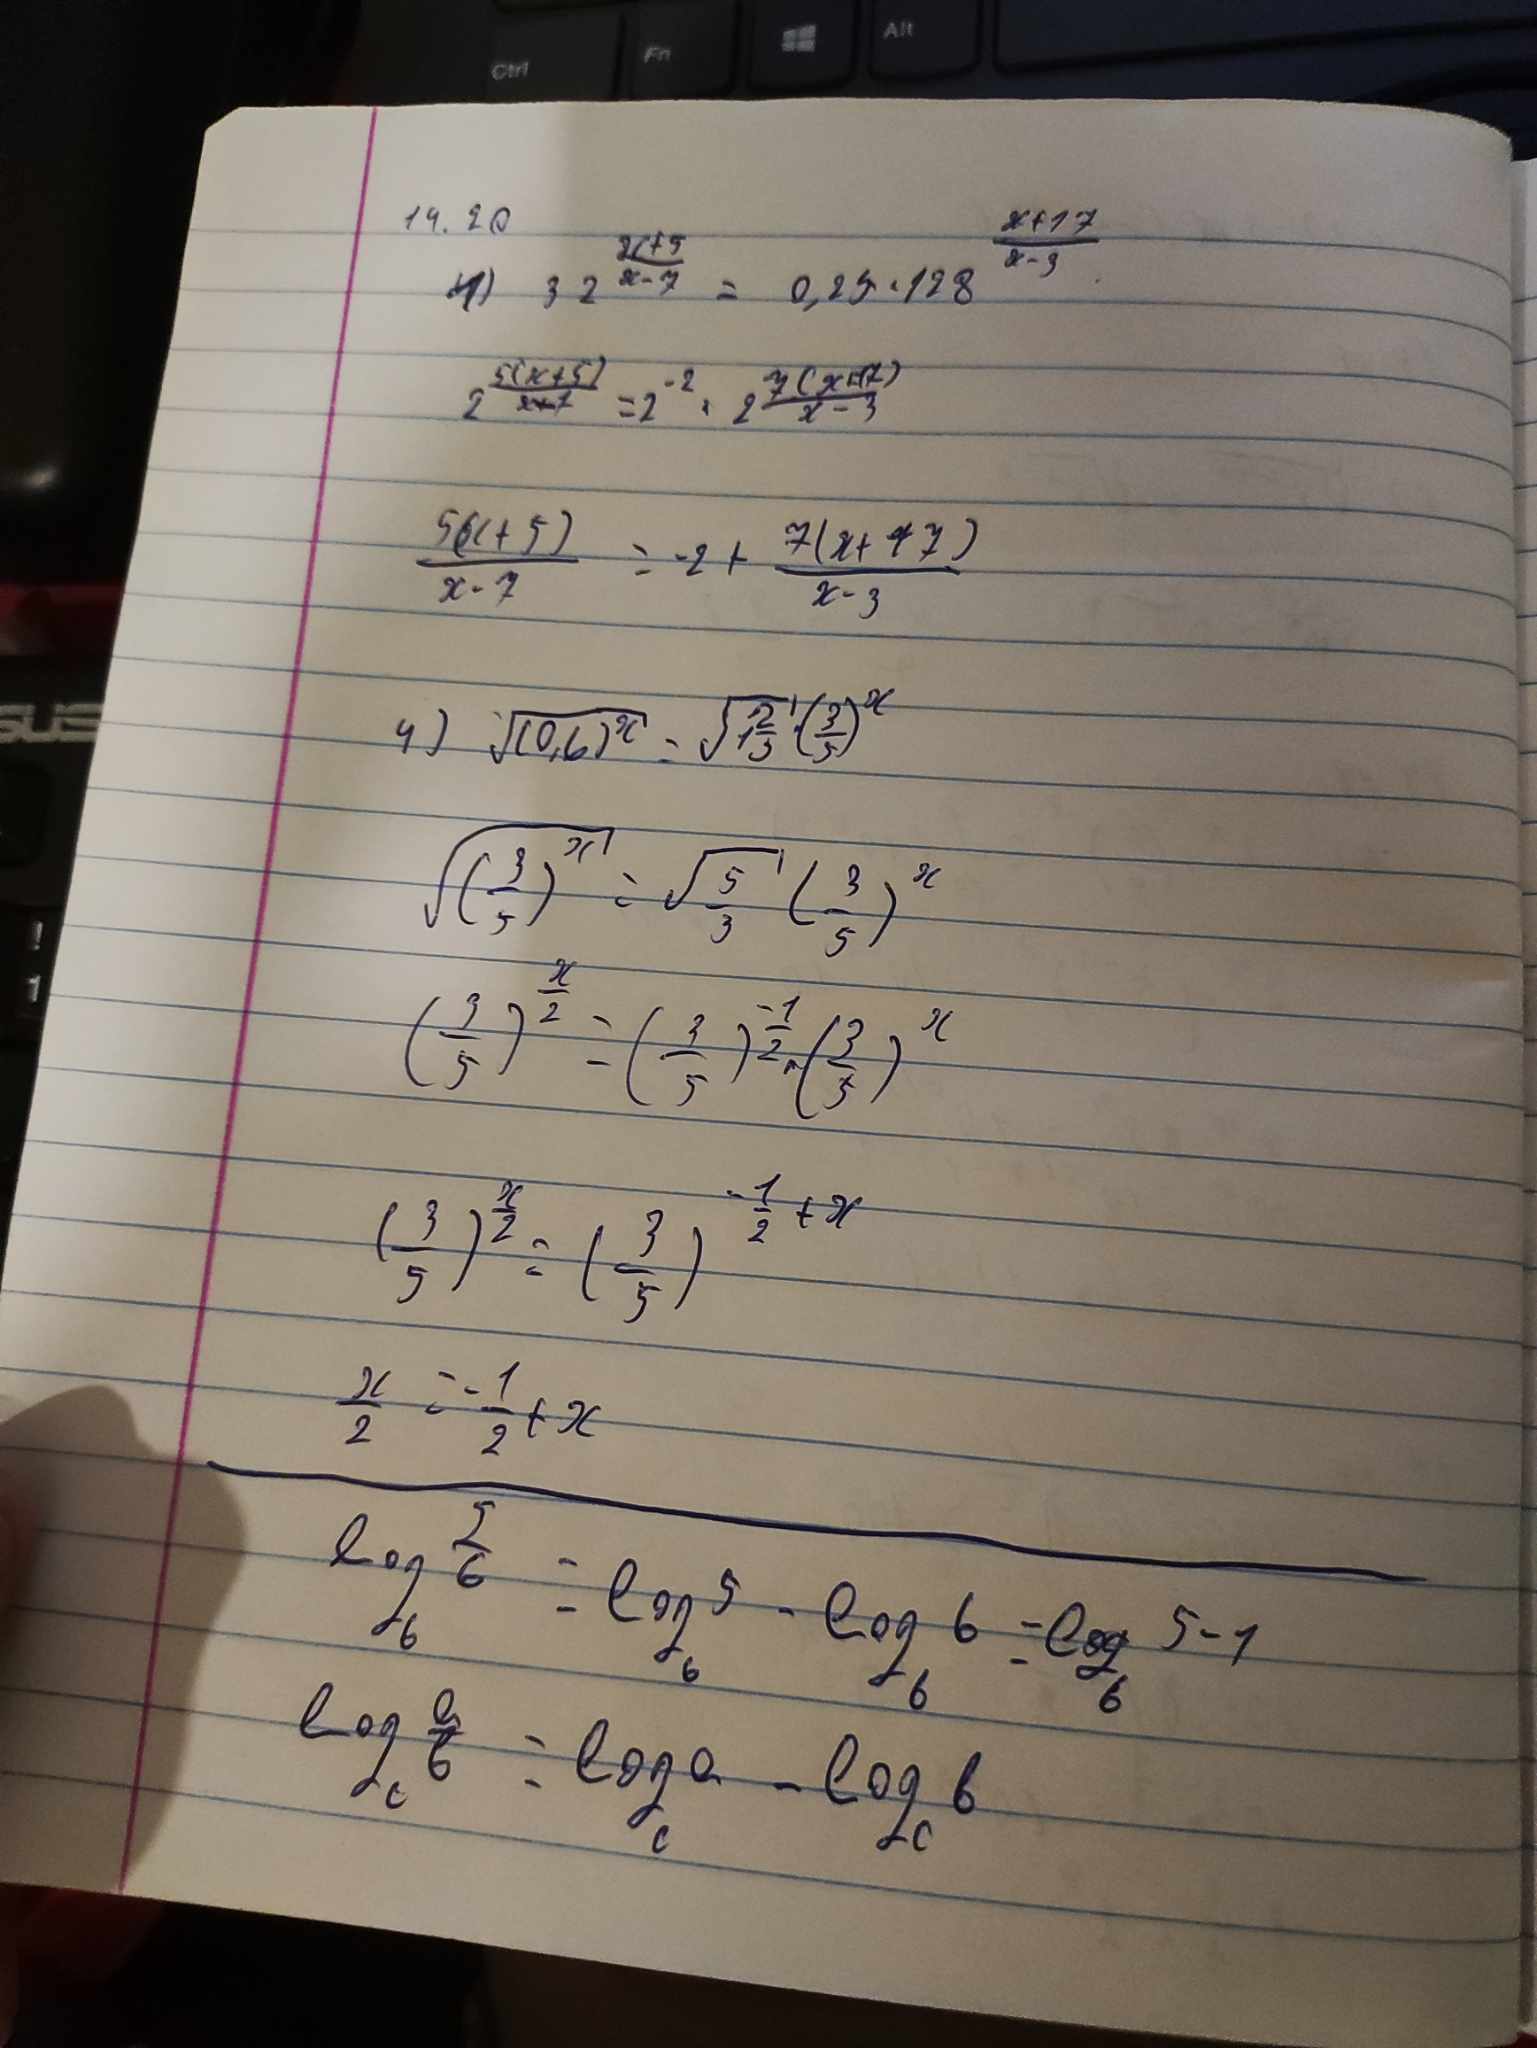 Ctrl Fn Alt
14.20
4) 32^((x+5)/(x-7)) = 0,25·128^((x+17)/(x-3))
2^(5(x+5)/(x-7)) = 2^(-2) · 2^(7(x+17)/(x-3))
5(x+5)/(x-7) = -2 + 7(x+17)/(x-3)
4) √((0,6)^x) = √(1 2/3) · (3/5)^x
√((3/5)^x) = √(5/3) (3/5)^x
(3/5)^(x/2) = (3/5)^(-1/2) · (3/5)^x
(3/5)^(x/2) = (3/5)^(-1/2+x)
x/2 = -1/2 + x
log_6 5/6 = log_6 5 - log_6 6 = log_6 5-1
log_c a/b = log_c a - log_c b